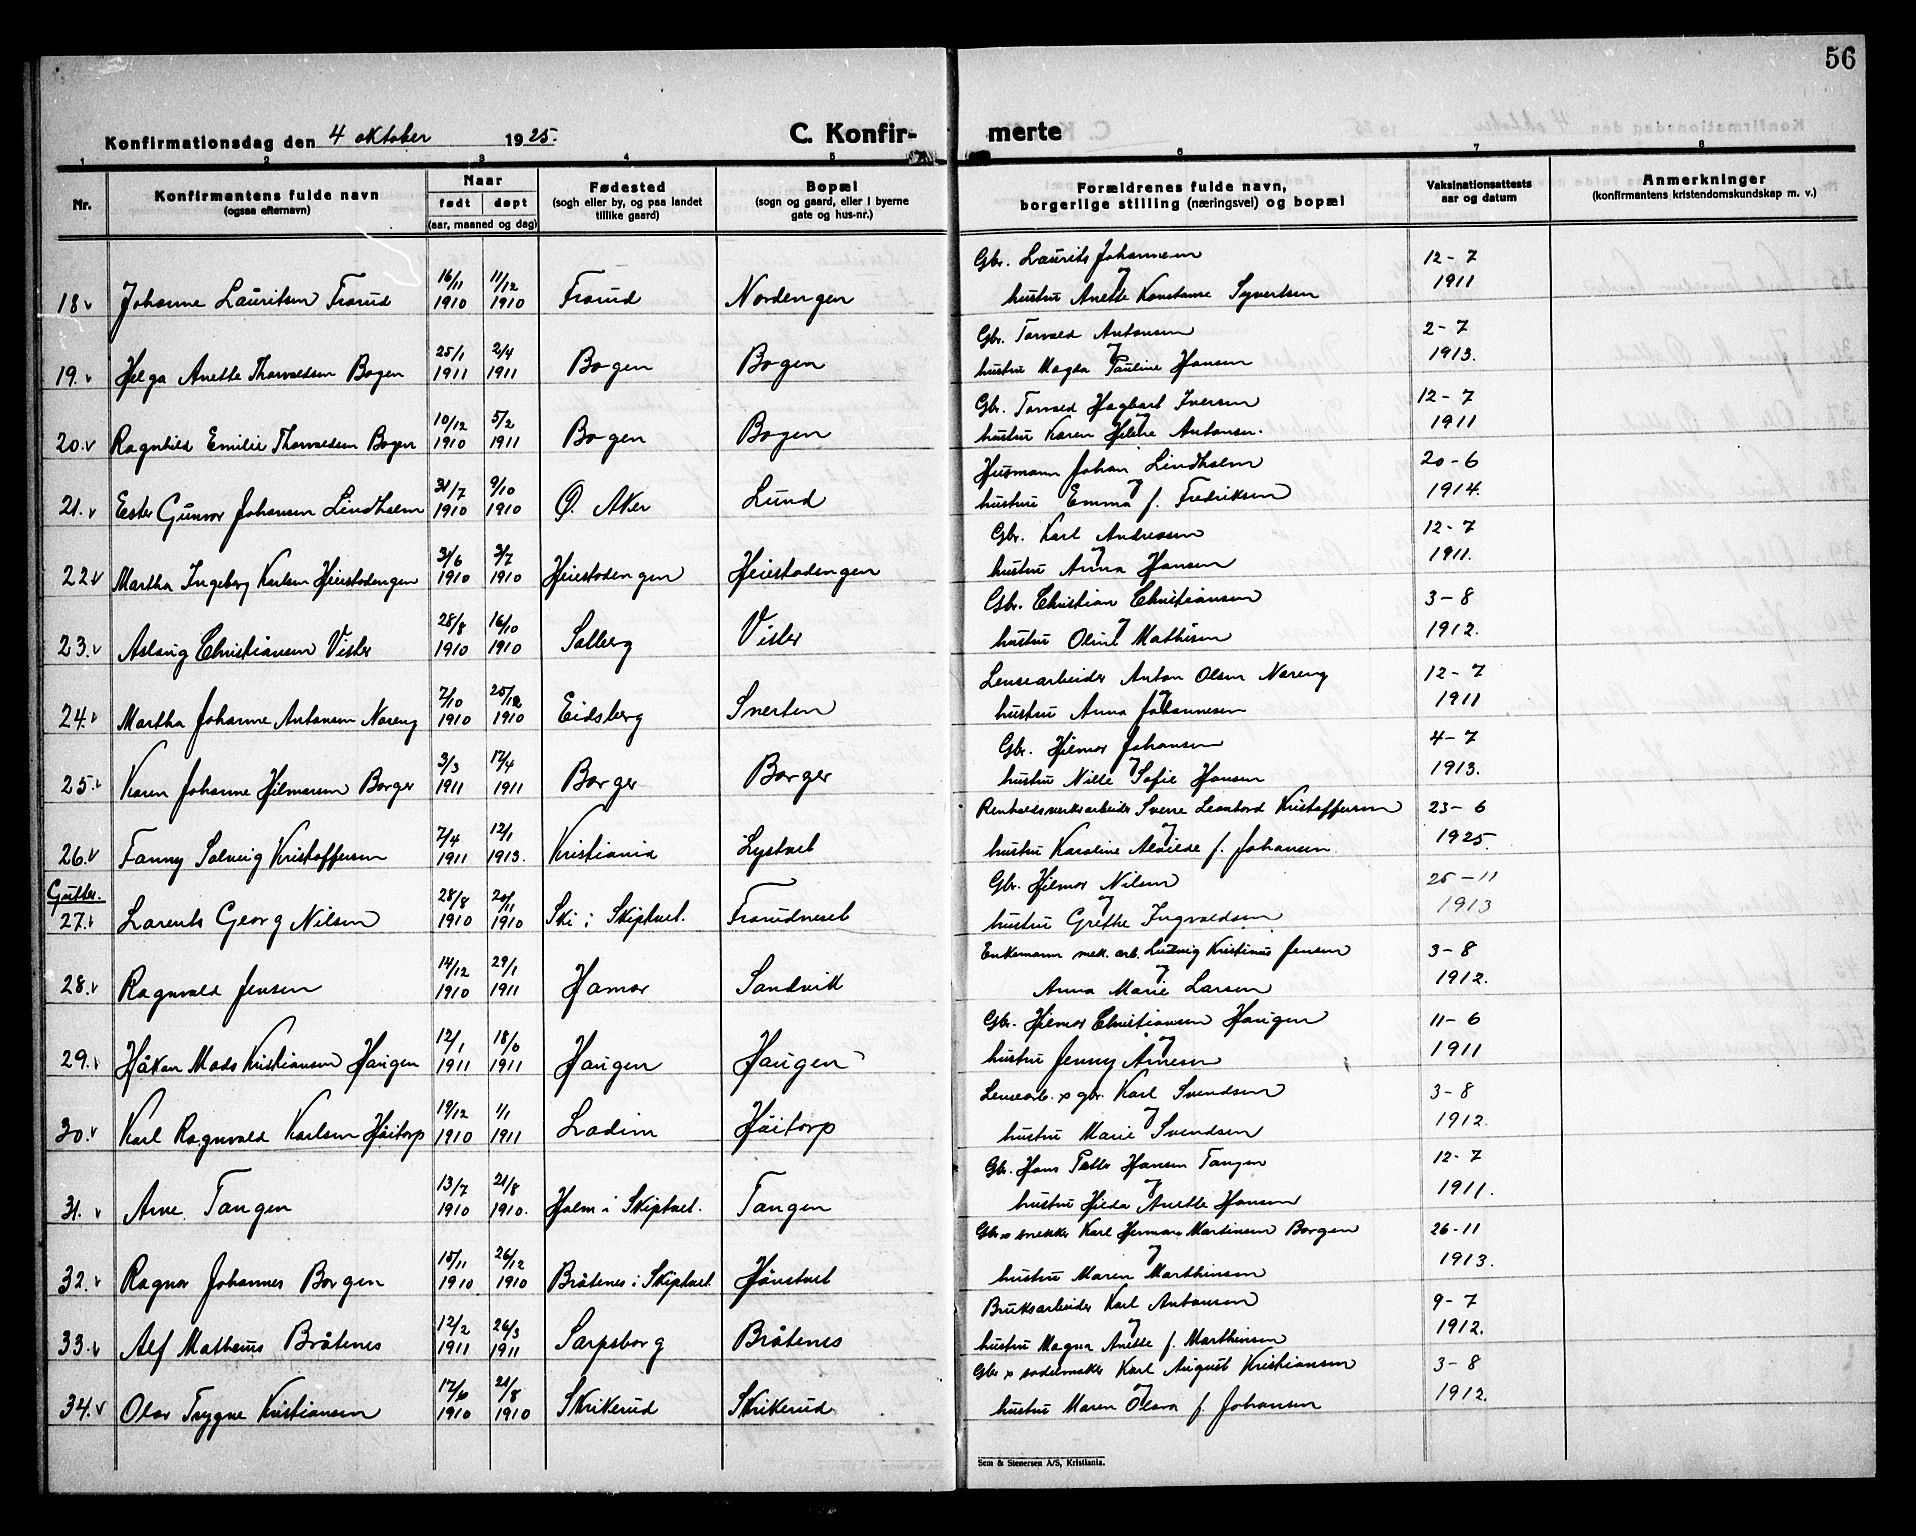 56
Konfirmationsdag den 4 oktober 1925.
C. Konfir- merte
1 2 3 4 5 6 7 8
Nr.
Konfirmantens fulde navn
(ogsaa efternavn)
Naar
født døpt
(aar, maaned og dag)
Fødested
(sogn eller by, og paa landet
tillike gaard)
Bopæl
(sogn og gaard, eller i byerne
gate og hus-nr.)
Forældrenes fulde navn,
borgerlige stilling (næringsvei) og bopæl
Vaksinationsattests
aar og datum
Anmerkninger
(konfirmantens kristendomskundskap m. v.)
16/11 11/12 Gbr. Laurits Johannesen 12-7
18.v Johanne Lauritsen Trorud 1910 1910 Trorud Nordengen hustru Anette Konstanse Syvertsen 1911
25/1 2/4 Gbr. Torvald Antonsen 2-7
19.v Helga Anette Thorvaldsen Bogen 1911 1911 Bogen Bogen hustru Magda Pauline Hansen 1913.
10/12 5/2 Gbr. Torvald Hagbart Iversen 12-7
20.v Ragnhild Emilie Thorvaldsen Bogen 1910 1911 Bogen Bogen hustru Karen Helene Antonsen. 1911
31/7 9/10 Husmann Johan Lindholm 20-6
21.v Ester Gunvor Johansen Lindholm 1910 1910 Ø. Aker Lund hustru Emma f. Fredriksen 1914.
3/7 Gbr. Karl Andreasen 12-7
22.v Martha Ingeborg Karlsen Heiestadengen 1910 1910 Heiestadengen Heiestadengen hustru Anna Hansen 1911.
28/8 16/10 Gbr. Christian Christiansen 3-8
23.v Aslaug Christiansen Vister 1910 1910 Solberg Vister hustru Oline Mathisen 1912.
7/10 25/12 Lensearbeider Anton Olsen Noreng 12-7
24.v Martha Johanne Antonsen Noreng 1910 1910 Eidsberg Snerten hustru Anna Johannesen 1911
3/3 17/4 Gbr. Hilmar Johansen 4-7
25.v Karen Johanne Hilmarsen Borger 1911 1911 Borger Borger hustru Nille Sofie Hansen 1913.
7/4 12/1 Renholdsverksarbeider Sverre Leonhard Kristoffersen 23-6
26.v Fanny Solveig Kristoffersen 1911 1913. Kristiania Lystvet hustru Karoline Alvilde f. Johansen 1925.
Gutter. 28/8 20/11 Gbr. Hilmar Nilsen 25-11
27.v Larents Georg Nilsen 1910 1910 Ski i Skiptvet. Trorudneset hustru Grethe Ingvaldsen 1913
14/12 29/1 Enkemann mek. arb. Ludvig Kristinus Jensen 3-8
28.v Ragnvald Jensen 1910 1911 Hamar Sandvik Anna Marie Larsen 1912.
12/1 Gbr. Hilmar Christiansen Haugen 11-6
29.v Håkon Mads Kristiansen Haugen 1911 1911 Haugen Haugen hustru Jenny Arnesen 1911
19/12 1/1 Lensearb. x gbr. Karl Svendsen 3-8
30.v Karl Ragnvald Karlsen Høitorp 1910 1911 Ladim Høitorp hustru Marie Svendsen 1912.
13/7 21/8 Gbr. Hans Petter Hansen Tangen 12-7
31.v Arne Tangen 1910 1910. Holm i Skiptvet. Tangen hustru Hilda Anette Hansen 1911.
15/11 26/12 Gbr x snekker Karl Herman Martinsen Borgen 26-11
32.v Ragnar Johannes Borgen 1910 1910 Bråtenes i Skiptvet Hønstvet hustru Maren Marthinsen 1913.
12/2 26/3 Bruksarbeider Karl Antonsen 9-7
33.v Alf Matheus Bråtenes 1911 1911 Sarpsborg Bråtenes hustru Magna Anette f. Marthinsen 1912.
17/6 21/8 Gbr x sadelmaker Karl August Kristiansen 3-8
34.v Olav Trygve Kristiansen 1910 1910 Skrikerud Skrikerud hustru Maren Olava f. Johansen 1912.
Sem & Stenersen A/S, Kristiania.